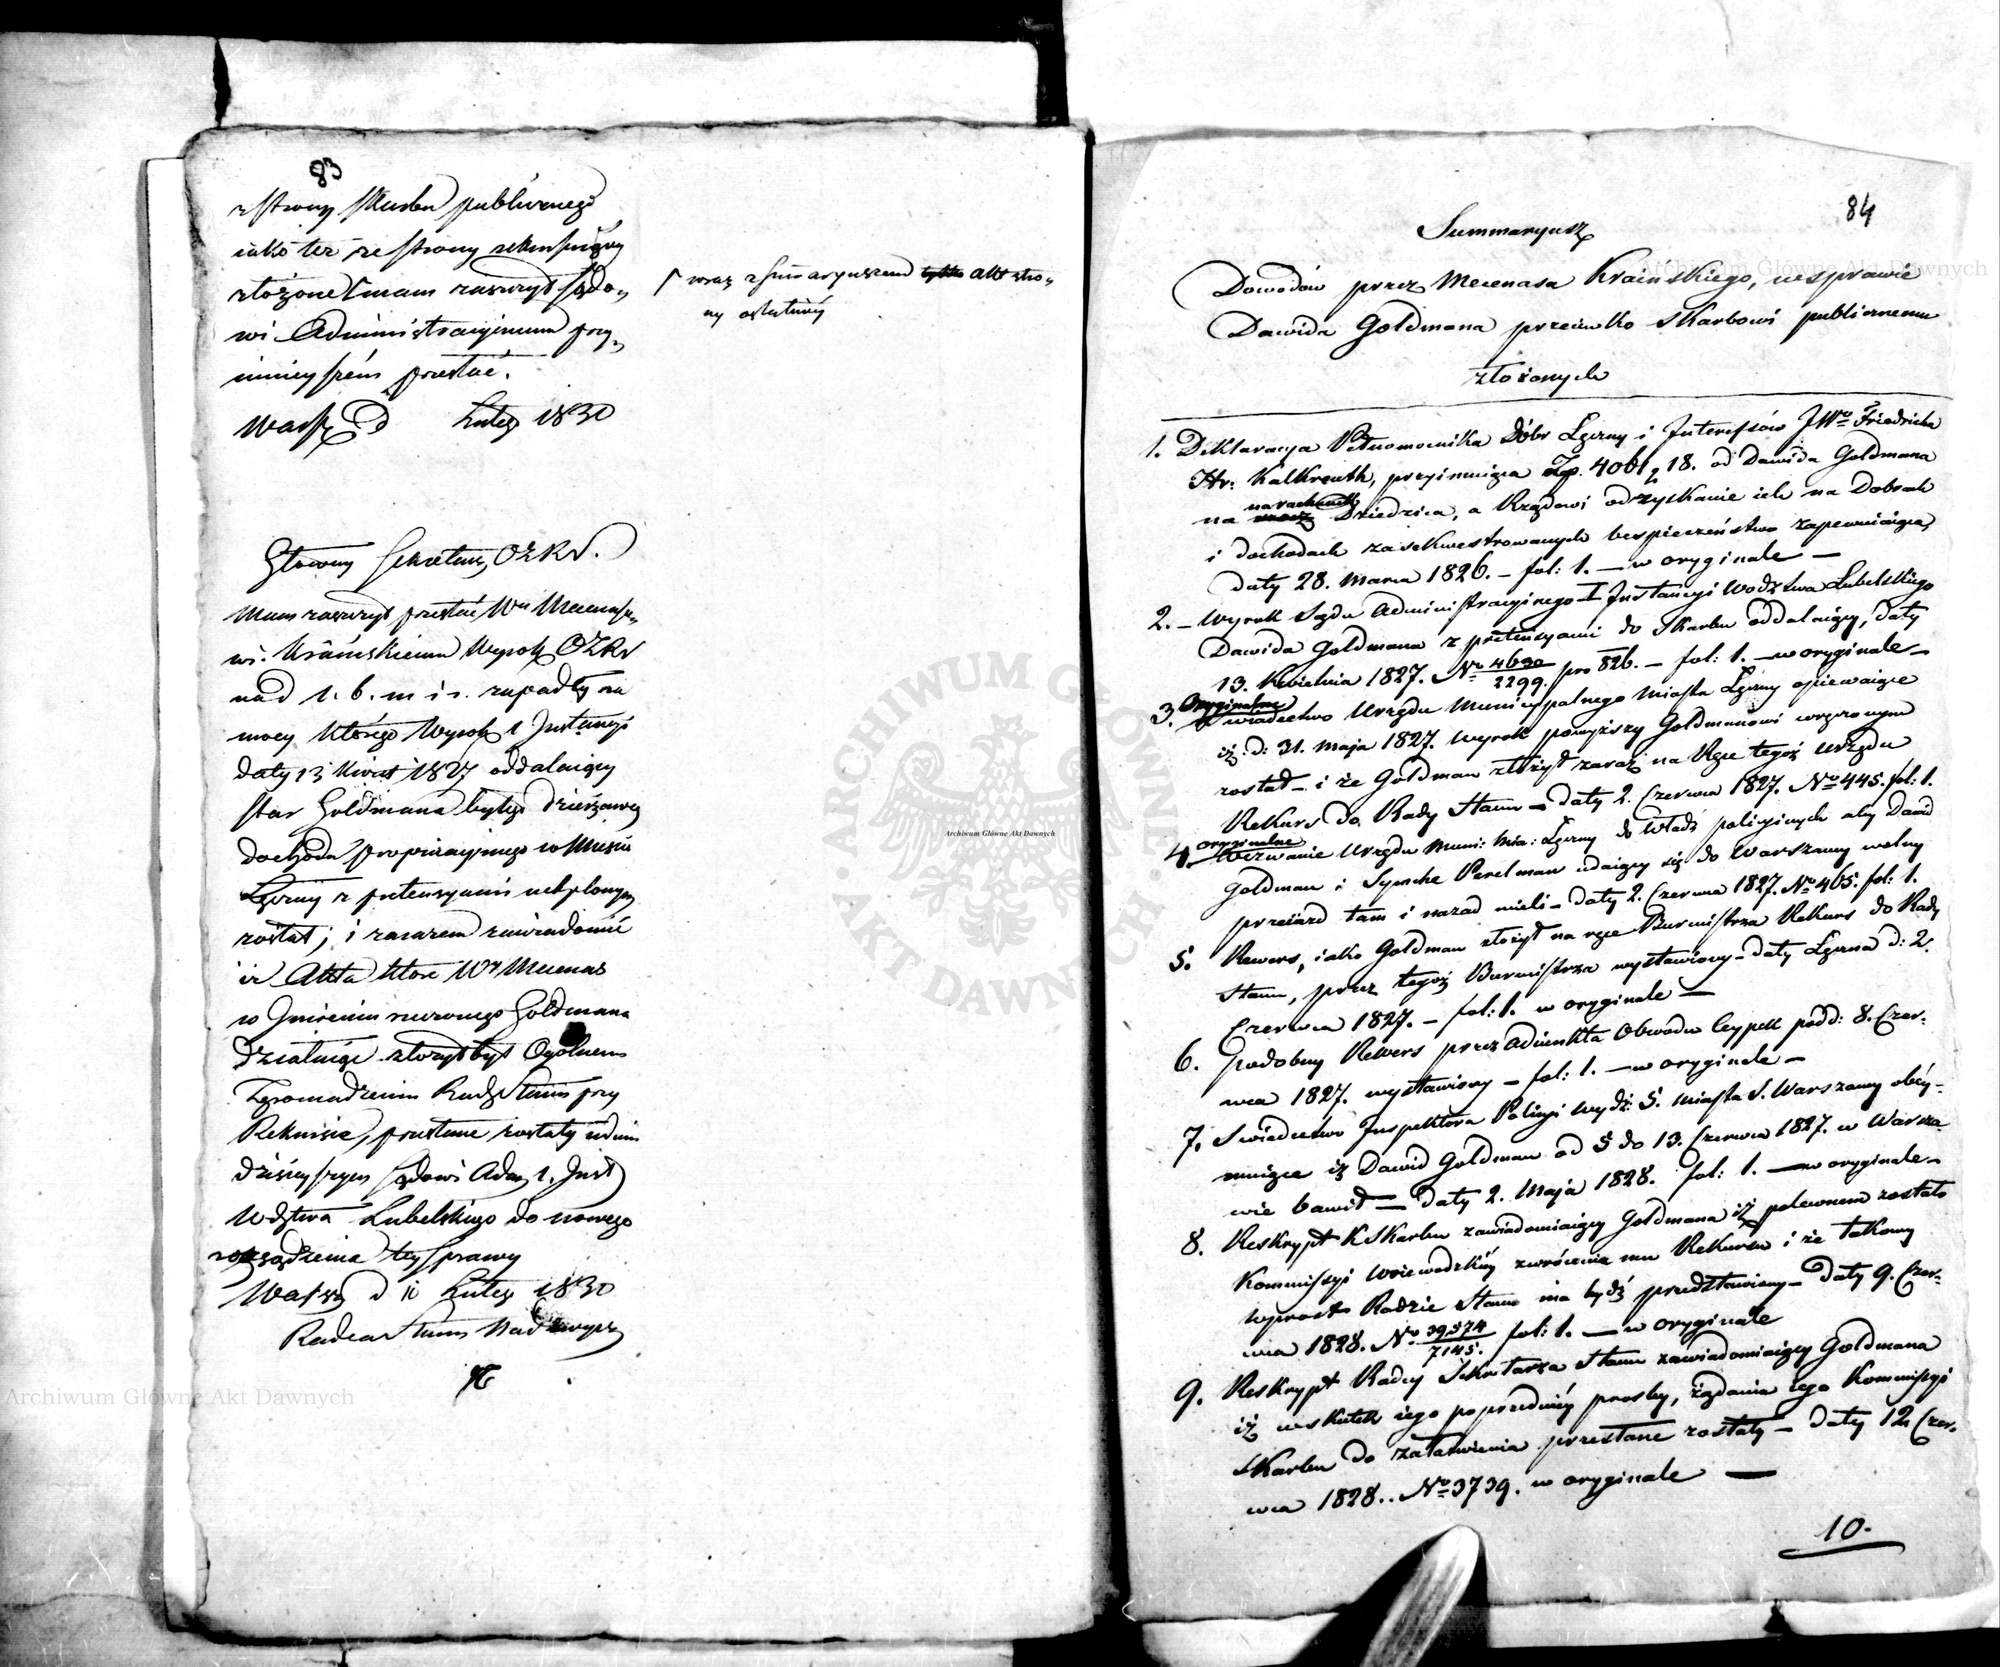 83
z strony skarbu publicznego
iako też ze strony rekuruiący
złożone mam zaszczyt Sądo,
wi Administracyjnemu przy,
ninieyszém przesłać.
Warsz. d Lutego 1830
wraz z Summaryuszem tylko akt stro,
ny ostatniéy
Główny Sekretarz OZRS.
Mam zaszczyt przesłać Wu Mecenaso,
wi Kraińskiemu Wyrok OZRS
nad 1. b. m i r. zapadły na
mocy którego Wyrok 1 Instancyi
daty 13 Kwiet 1827 oddalaiący
star Goldmana byłego dzierżawcę
dochodu propinacyjnego w Mieście
Łęczny z pretensyami uchylonym
został; i zarazem zawiadomić
iż Akta które Wy Mecenas
w Imieniu rzeczonego Goldmana
działaiąc złożył był Ogólnemu
Zgromadzeniu Rady Stanu przy
Rekursie, przesłane zostały w dniu
dzisieyszym Sądowi Adm. 1. Inst
Wdztwa Lubelskiego do nowego
rozsądzenia tey sprawy
Warsz d 11 Lutego 1830
Radca Stanu Nadzwycz
84
Summaryusz
Dowodów przez Mecenasa Kraińskiego, w sprawie
Dawida Goldmana przeciwko Skarbowi publicznemu
złożonych
1. Deklaracya Pełnomocnika Dóbr Łęczny i Interessów JWo Friedricha
Hr: Kalkreuth, przyimuiąca Zp. 4061 g 18. od Dawida Goldmana
na rachunek
na Dziedzica, a Rządowi odzyskanie ich na Dobrach
i dochodach zasekwestrowanych bespieczeństwo zapewniaiąca,
daty 28. Marca 1826. – fol: 1. – w oryginale –
2. – Wyrok Sądu Administracyinego I Instancyi Wodztwa Lubelskiego
Dawida Goldmana z pretensyami do Skarbu oddalaiący, daty
13. Kwietnia 1827. No 4690/2299. pro 826. – fol: 1. – w oryginale –
Oryginalne
3. Swiadectwo Urzędu Municypalnego Miasta Łęczny opiewaiące
iż d: 31. Maja 1827. wyrok powyższy Goldmanowi wręczonym
został – i że Goldman złożył zaraz na Ręce tegoż Urzędu
Rekurs do Rady Stanu – daty 2. Czerwca 1827. No 445. fol: 1.
oryginalne
4. Wezwanie Urzędu Muni: Mia: Łęczny do Władz policyinych aby Dawid
Goldman i Symche Perelman udaiący się do Warszawy wolny
przeiazd tam i nazad mieli – daty 2. Czerwca 1827. No 465. fol: 1.
5. Rewers, iako Goldman złożył na ręce Burmistrza Rekurs do Rady
Stanu, przez tegoż Burmistrza wystawiony – daty Łęczna d: 2.
Czerwca 1827. – fol: 1. w oryginale –
6. Podobny Rewers przez Adiunkta Obwodu pod d: 8. Czer-
wca 1827. wystawiony – fol: 1. – w oryginale –
7. Swiadectwo Inspektora Policyi Wydz: 5. Miasta S. Warszawy obey-
muiące iż Dawid Goldman od 5 do 13. Czerwca 1827. w Warsza-
wie bawił – daty 2. Maja 1828. fol: 1. – w oryginale –
8. Reskrypt K Skarbu zawiadomiaiący Goldmana iż poleconem zostało
Kommissyi Woiewodzkiéy zwrócenie mu Rekursu i że takowy
wprost Radzie Stanu ma bydź przedstawiony – daty 9. Czer-
wca 1828. No 39574/7145. fol: 1. – w oryginale
9. Reskrypt Radcy Sekretarza Stanu zawiadomiaiący Goldmana
iż wskutek iego poprzedniéy prosby, żądania iego Kommissyi
Skarbu do załatwienia przesłane zostały – daty 12 Czer-
wca 1828.. No 3739. w oryginale –
10.
ARCHIWUM GŁÓWNE AKT DAWNYCH
Archiwum Główne Akt Dawnych
Archiwum Główne Akt Dawnych
Archiwum Główne Akt Dawnych